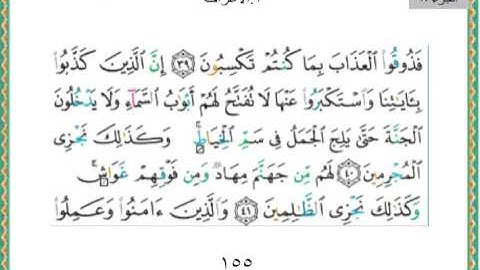 فَذُوقُوا۟ ٱلْعَذَابَ بِمَا كُنتُمْ تَكْسِبُونَ ٣٩ إِنَّ ٱلَّذِينَ كَذَّبُوا۟
بِـَٔايَٰتِنَا وَٱسْتَكْبَرُوا۟ عَنْهَا لَا تُفَتَّحُ لَهُمْ أَبْوَٰبُ ٱلسَّمَآءِ وَلَا يَدْخُلُونَ
ٱلْجَنَّةَ حَتَّىٰ يَلِجَ ٱلْجَمَلُ فِى سَمِّ ٱلْخِيَاطِ ۚ وَكَذَٰلِكَ نَجْزِى
ٱلْمُجْرِمِينَ ٤٠ لَهُم مِّن جَهَنَّمَ مِهَادٌ وَمِن فَوْقِهِمْ غَوَاشٍ ۚ
وَكَذَٰلِكَ نَجْزِى ٱلظَّٰلِمِينَ ٤١ وَٱلَّذِينَ ءَامَنُوا۟ وَعَمِلُوا۟
١٥٥